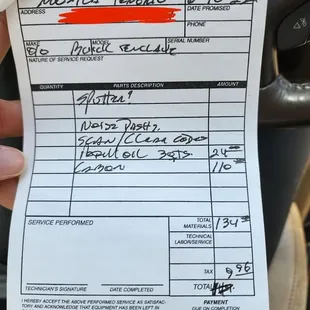 ADDRESS
DATE PROMISED
PHONE
MAKE MODEL SERIAL NUMBER
Buick Enclave
NATURE OF SERVICE REQUEST
QUANTITY PARTS DESCRIPTION AMOUNT
Sputter?
Noise Dash?
Scan/Clear Codes
oil 3qts. 24.00
Labor 110.00
SERVICE PERFORMED
TOTAL MATERIALS 134.00
TECHNICAL LABOR/SERVICE
TAX 9.96
TOTAL
TECHNICIAN'S SIGNATURE DATE COMPLETED
I HEREBY ACCEPT THE ABOVE PERFORMED SERVICE AS SATISFAC-
TORY AND ACKNOWLEDGE THAT EQUIPMENT HAS BEEN LEFT IN
PAYMENT
DUE ON COMPLETION